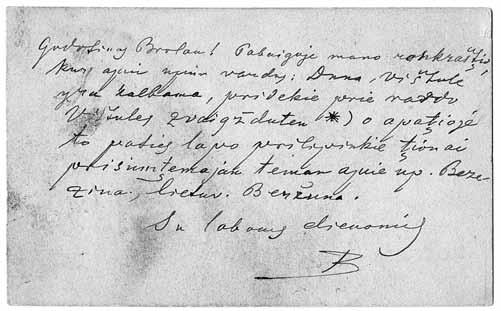 Godotinas Brolau! Pabaigoje mano rankraščio,
kur apie upiu vardus: Duna, Vižule
yra kalbama, pridekie prie žodžo
Vižules zvaigžduten *) o apatioje
to paties lapo prilipinkie šionai
prisiunstemajan teman apie up. Bere-
zina, lietuv. Beržuna.
Su laboms dienomis
B